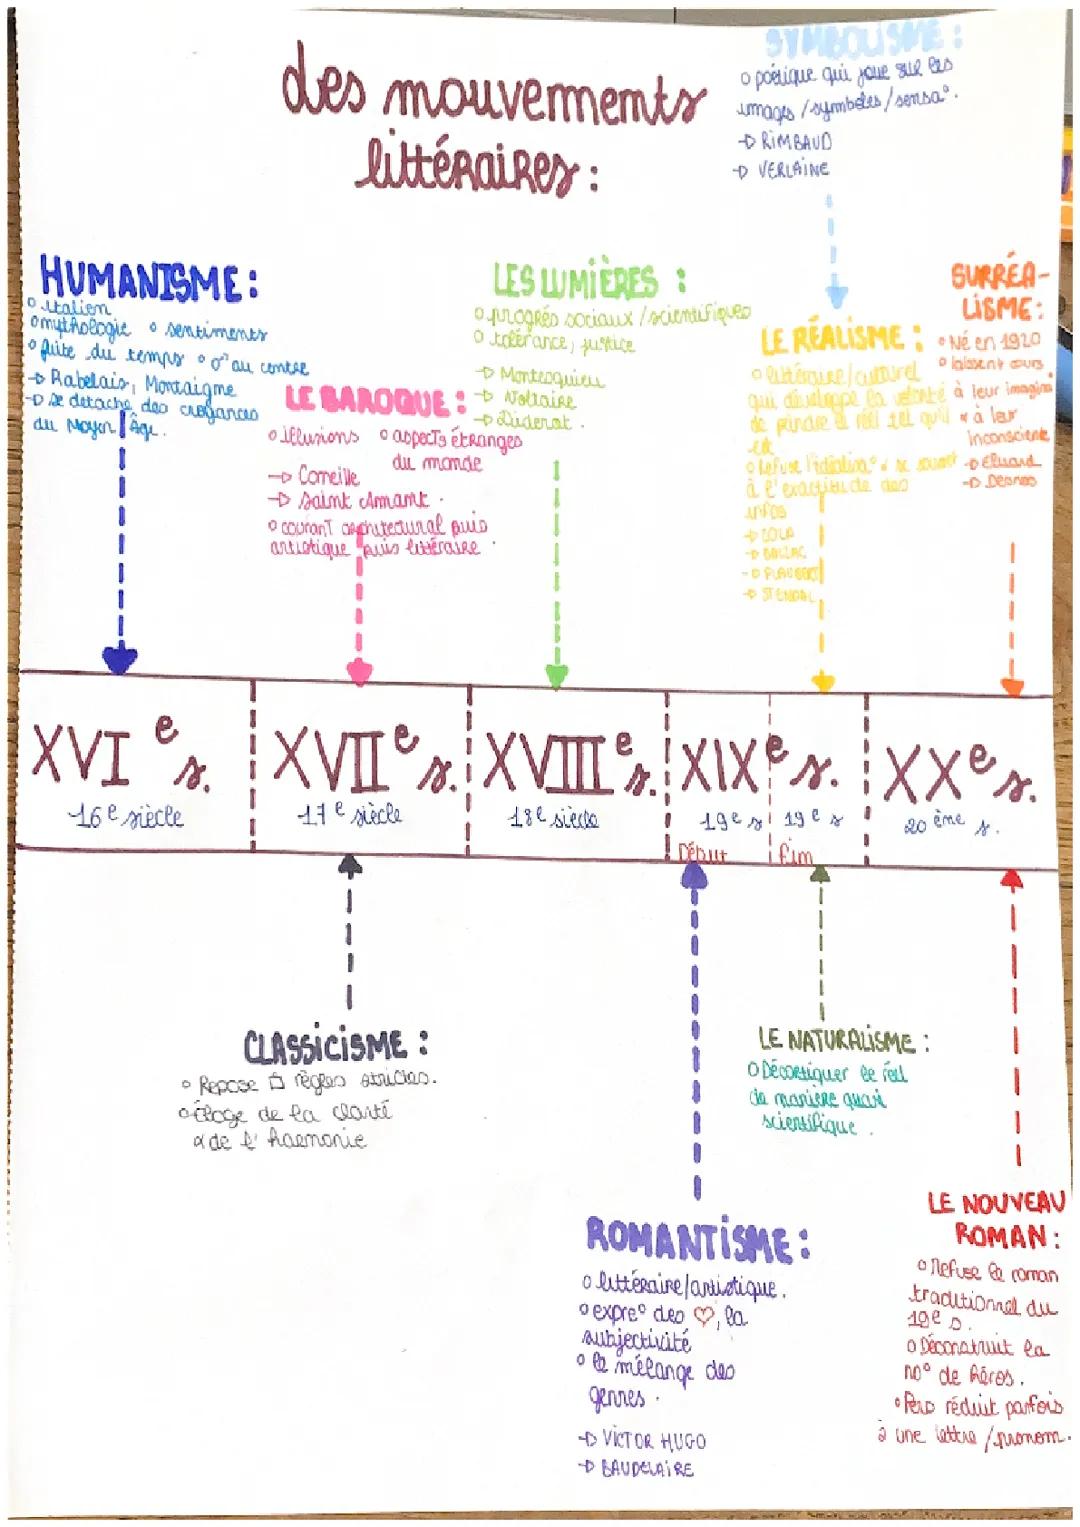 des mouvements
littéraires :
SYMBOLISME :
o poétique qui joue sur les
images / symboles / sensa°.
→ RIMBAUD
→ VERLAINE
HUMANISME :
o italien
o mythologie o sentiments
o fuite du temps o ♂ au centre
→ Rabelais, Montaigne
→ se détache des croyances
du Moyen Âge.
LE BAROQUE :
o illusions o aspects étranges
du monde
→ Corneille
→ Saint Amant.
o courant architectural puis
artistique puis littéraire.
LES LUMIÈRES :
o progrès sociaux / scientifiques
o tolérance, justice
→ Montesquieu
→ Voltaire
→ Diderot.
LE RÉALISME :
o littéraire/culturel
qui développe la volonté
de peindre le réel tel qu'il
est
o Refuse l'idéalisa° & se soumet
à l'exactitude des
infos
→ ZOLA
→ BALZAC
→ FLAUBERT
→ STENDAL
SURRÉA-
LISME :
o Né en 1920
o laissent cours
à leur imagina
& à leur
inconscient
→ Eluard
→ Desnos
XVIe s.
16e siècle
XVIIe s.
17e siècle
XVIIIe s.
18e siècle
XIXe s.
19e s
Début
19e s
fin
XXe s.
20 ème s.
CLASSICISME :
o Repose règles strictes.
o éloge de la clarté
& de l'harmonie
ROMANTISME :
o littéraire/artistique.
o expre° des ♡, la
subjectivité
o le mélange des
genres.
→ VICTOR HUGO
→ BAUDELAIRE
LE NATURALISME :
o Décortiquer le réel
de manière quasi
scientifique.
LE NOUVEAU
ROMAN :
o Refuse le roman
traditionnel du
19e s.
o Déconstruit la
no° de héros.
o Perso réduit parfois
à une lettre / pronom.